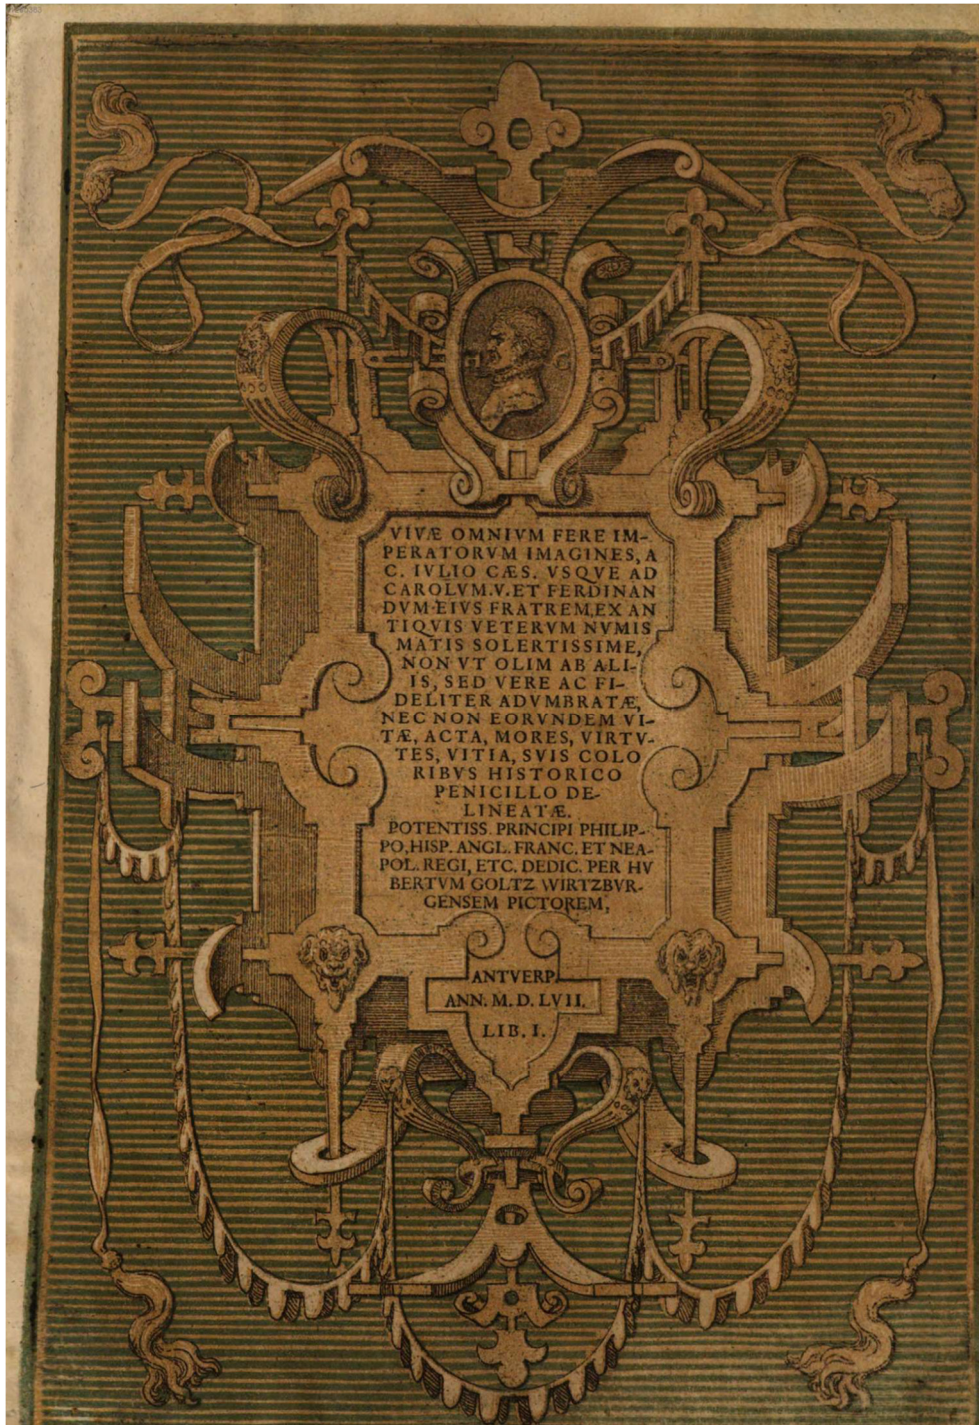 H G
VIVÆ OMNIVM FERE IM-
PERATORVM IMAGINES, A
C. IVLIO CÆS. VSQVE AD
CAROLVM.V.ET FERDINAN
DVM·EIVS FRATREM,EX AN
TIQVIS VETERVM NVMIS
MATIS SOLERTISSIME,
NON VT OLIM AB ALI-
IS, SED VERE AC FI-
DELITER ADVMBRATÆ,
NEC NON EORVNDEM VI-
TÆ, ACTA, MORES, VIRTV-
TES, VITIA, SVIS COLO
RIBVS HISTORICO
PENICILLO DE-
LINEATÆ.
POTENTISS. PRINCIPI PHILIP-
PO, HISP. ANGL. FRANC. ET NEA-
POL. REGI, ETC. DEDIC. PER HV
BERTVM GOLTZ WIRTZBVR-
GENSEM PICTOREM,
ANTVERP.
ANN. M. D. LVII.
LIB. I.